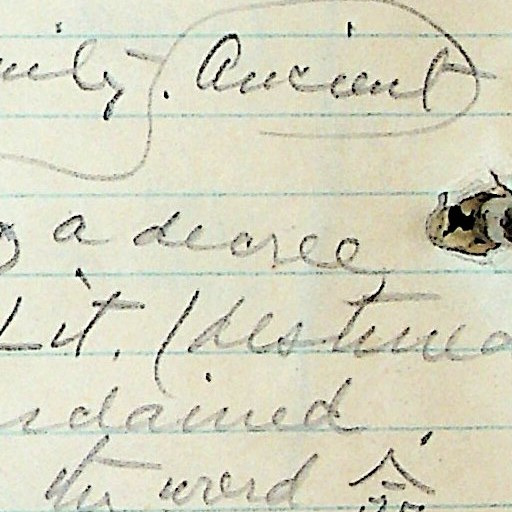 ily. Ancient
a decree
Lit. (destined
dained.
the word